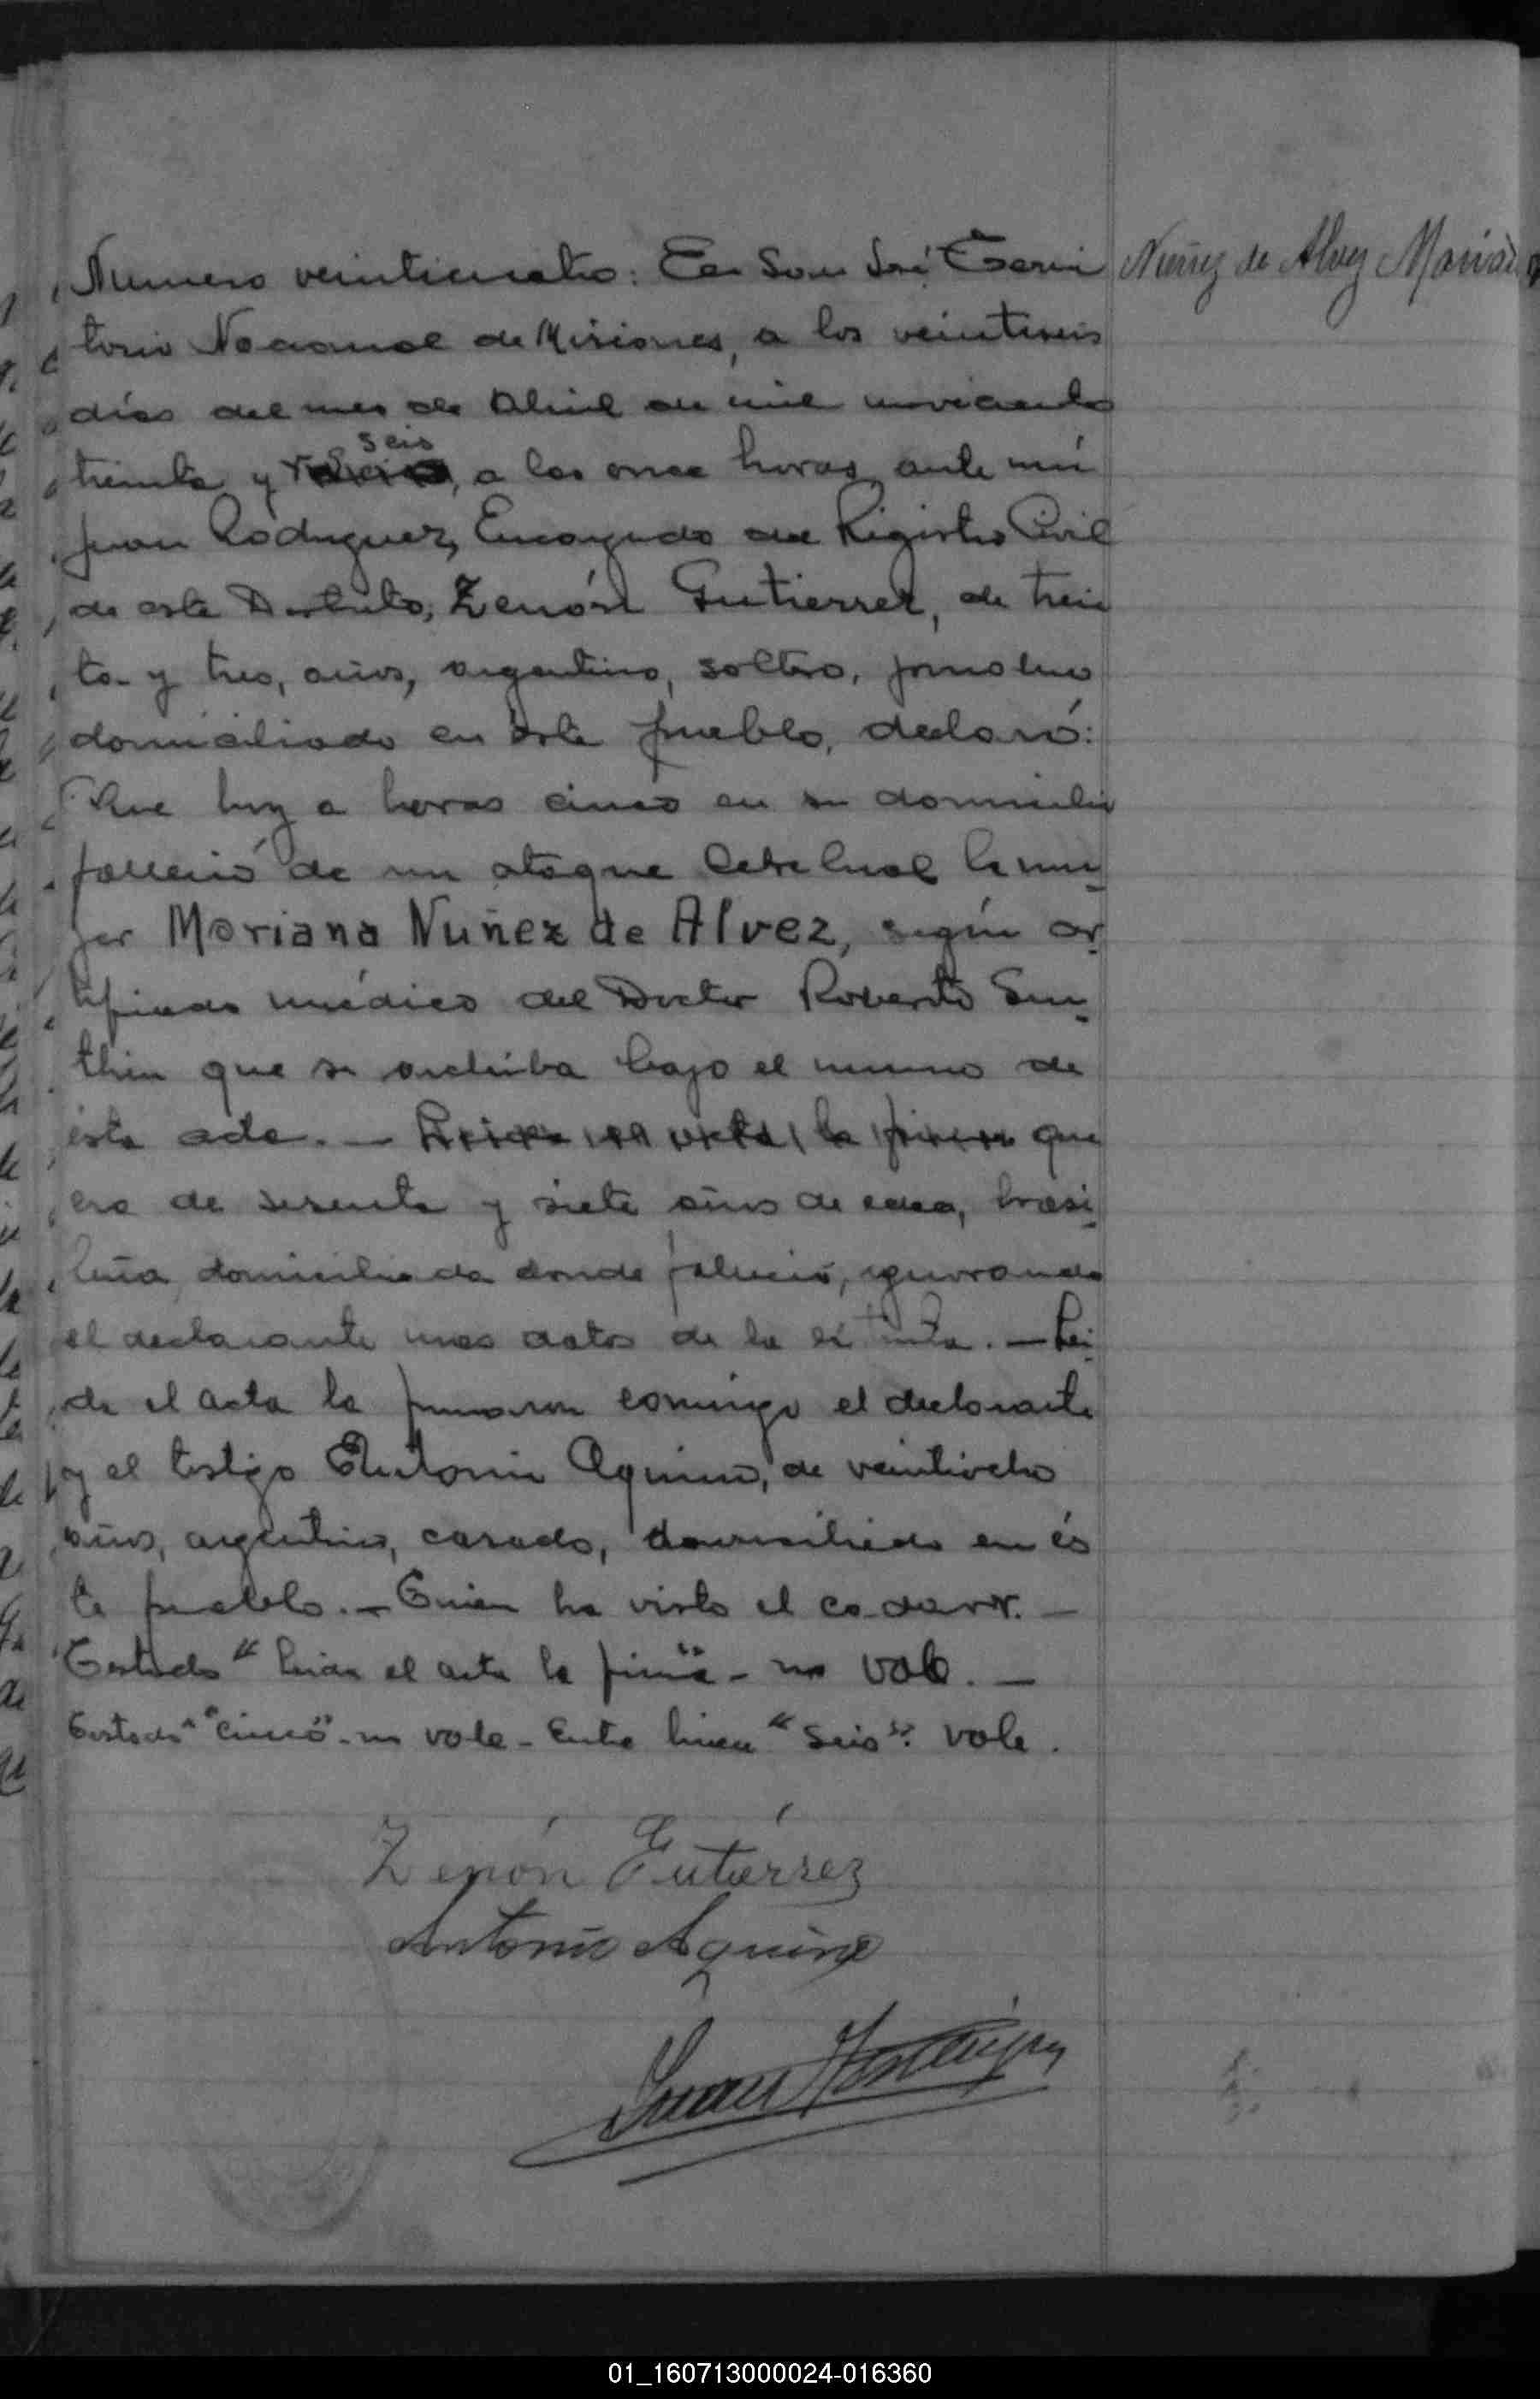 Numero veinticuatro: En San José Terri
Nuñez de Alvez Mariana
torio Nacional de Misiones, a los veintiseis
dias del mes de Abril de mil noveciento
seis
treinta y cinco, a las once horas, ante mi
Juan Rodriguez, Encargado del Registro Civil
de este Distrito, Zenón Gutierrez, de trein
ta y tres, años, argentino, soltero, jornalero
domiciliado en éste pueblo, declaró:
Que hoy a horas cinco en su domicilio
falleció de un ataque Cerebral la mu-
jer Mariana Nuñez de Alvez, según cer-
tificado médico del Doctor Roberto
que se archiba bajo el numero de
ésta acta. — Leida el acta la firma que
era de sesenta y siete años de edad, brasi-
leña, domiciliada donde falleció, ignorando
el declarante mas datos de la extinta. — Lei-
da el acta la firmaron conmigo el declarante
y el testigo Antonio Aquino, de veintiocho
años, argentino, casado, domiciliado en és
te pueblo. — Quien ha visto el cadaver. —
Testado "leida el acta la firma" - no vale. —
Testado "cinco" - no vale - Entre linea "seis". vale.
Zenón Gutiérrez
Antonio Aquino
Juan Rodriguez
01_160713000024-016360